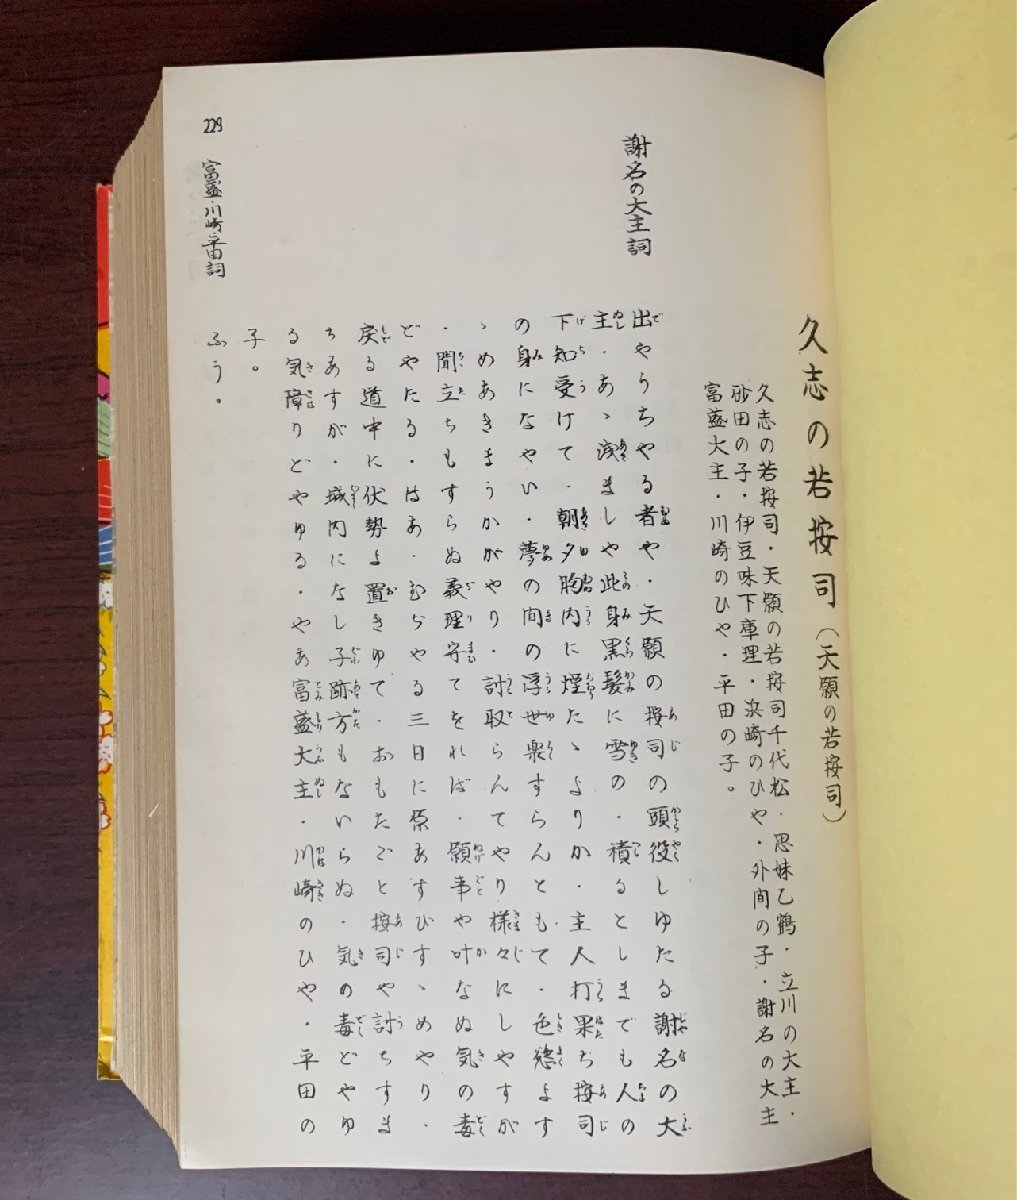 久志の若按司（天願の若按司）
久志の若按司・天願の若按司千代松・思妹乙鶴・立川の大主・
砂田の子・伊豆味下庫理・浜崎のひや・外間の子・謝名の大主
富盛大主・川崎のひや・平田の子。
謝名の大主詞
出やうちやる者や・天願の按司の頭役しゆたる謝名の大
主・あゝ浅ましや此身黒髪に雪の・積るとしまでも人の
下知受けて・朝夕胸内に煙たゝよりか・主人打果ち按司
の身になやい・夢の間の浮世楽すらんともて・色慾よす
ゝめあきまうかがやり・討取らんてやり様々にしやすが
・聞立ちもすらぬ義理守てをれば・願事や叶なぬ気の毒
どやたる・はあ・むぢやる三日に原あすびすゝめやり・
戻る道中に伏勢よ置きゆて・おもたごと按司や討ちすま
ちあすが・城内になし子跡方もないらぬ・気の毒どやゆ
る気障りどやゆる・やあ富盛大主・川崎のひや・平田の
子。
229 富盛・川崎・平田詞
ふう。